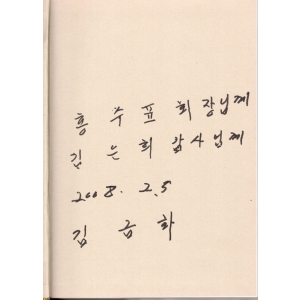 홍수표 회장님께
김은희 감사님께
2008. 2.5
김금화